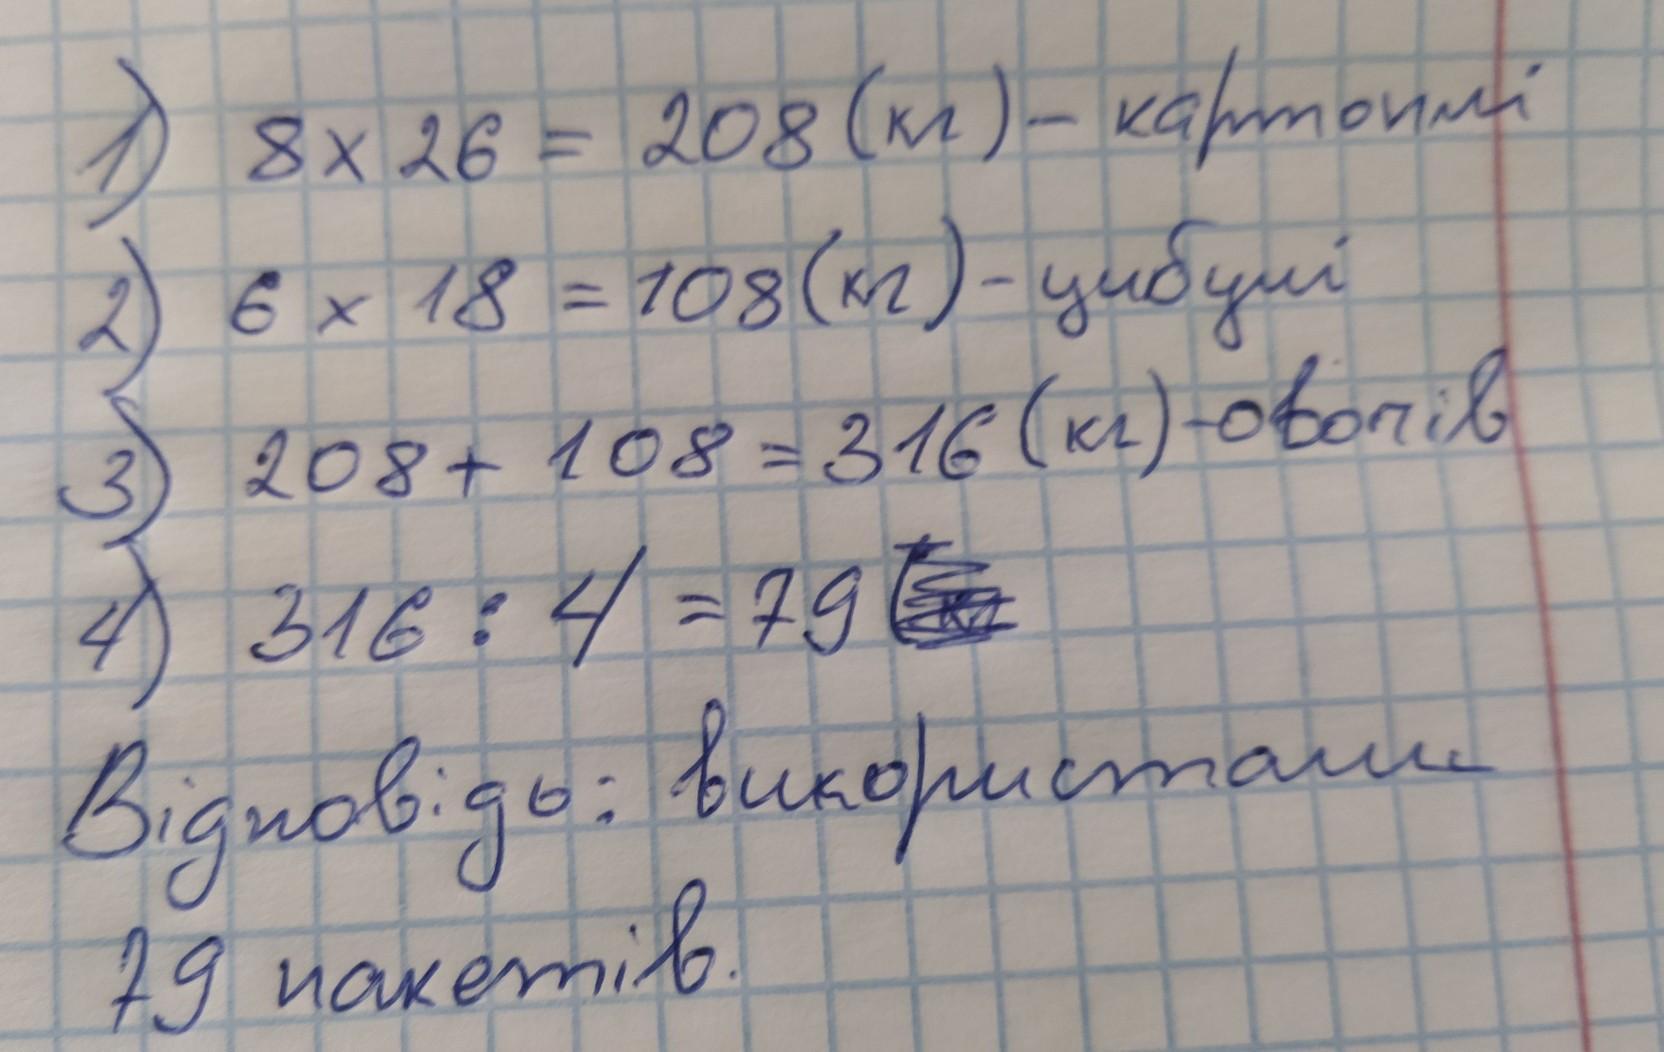 1) 8 x 26 = 208 (кг) - картоплі
2) 6 x 18 = 108 (кг) - цибулі
3) 208 + 108 = 316 (кг) - овочів
4) 316 : 4 = 79
Відповідь: використали
79 пакетів.